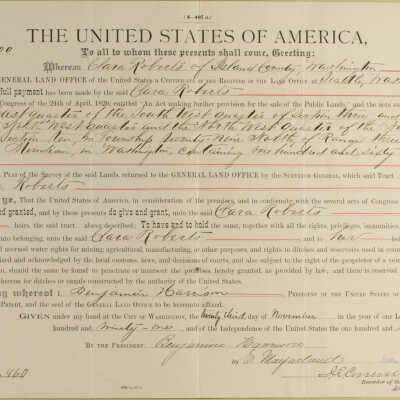 (4-405 a.)
THE UNITED STATES OF AMERICA,
To all to whom these presents shall come, Greeting:
Whereas Clara Roberts of Island County, Washington
GENERAL LAND OFFICE of the United States a Certificate of the Register of the Land Office at Seattle, Was
full payment has been made by the said Clara Roberts
Congress of the 24th of April, 1820, entitled "An Act making further provision for the sale of Public Lands," and the acts su
East quarter of the South West quarter of Section three and
South West quarter and the North West quarter of the
Section ten, in Township twenty nine North of Range three
Meridian, in Washington, containing one hundred and sixty
PLAT of the Survey of the said Lands returned to the GENERAL LAND OFFICE by the SURVEYOR GENERAL, which said Tract
Roberts
ye, That the United States of America, in consideration of the premises, and in conformity with the several acts of Congress
and granted, and by these presents do give and grant, unto the said Clara Roberts
heirs, the said tract above described; To have and to hold the same, together with all the rights, privileges, immunities,
unto belonging, unto the said Clara Roberts and to her
accrued water rights for mining, agricultural, manufacturing, or other purposes, and rights to ditches and reservoirs used in con
and acknowledged by the local customs, laws, and decisions of courts, and also subject to the right of the proprietor of a vein
should the same be found to penetrate or intersect the premises hereby granted, as provided by law; and there is reserved
hereon for ditches or canals constructed by the authority of the United States.
whereof I, Benjamin Harrison, PRESIDENT OF THE UNITED S
Patent, and the seal of the GENERAL LAND OFFICE to be hereunto affixed.
GIVEN under my hand at the CITY OF WASHINGTON, the twenty third day of November, in the year of our L
hundred and ninety-one, and of the Independence of the United States the one hundred and
BY THE PRESIDENT: Benjamin Harrison
By
460
Recorder of the